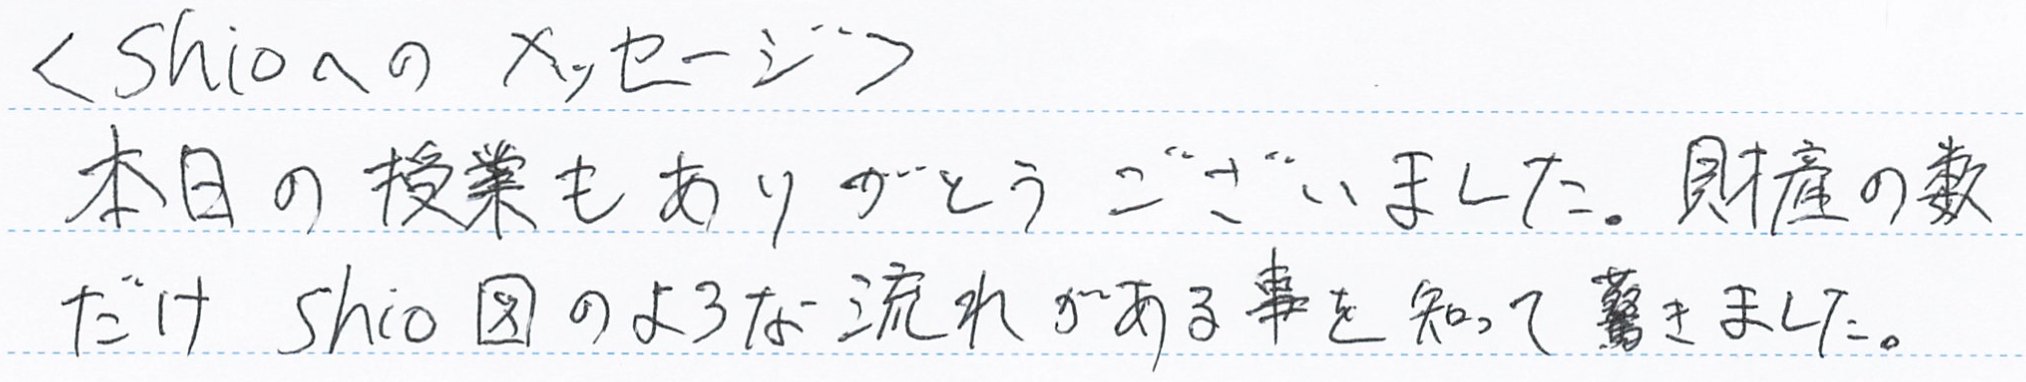 <shioへの メッセージ>
本日の授業もありがとうございました。財産の数
だけ shio図のような流れがある事を知って驚きました。